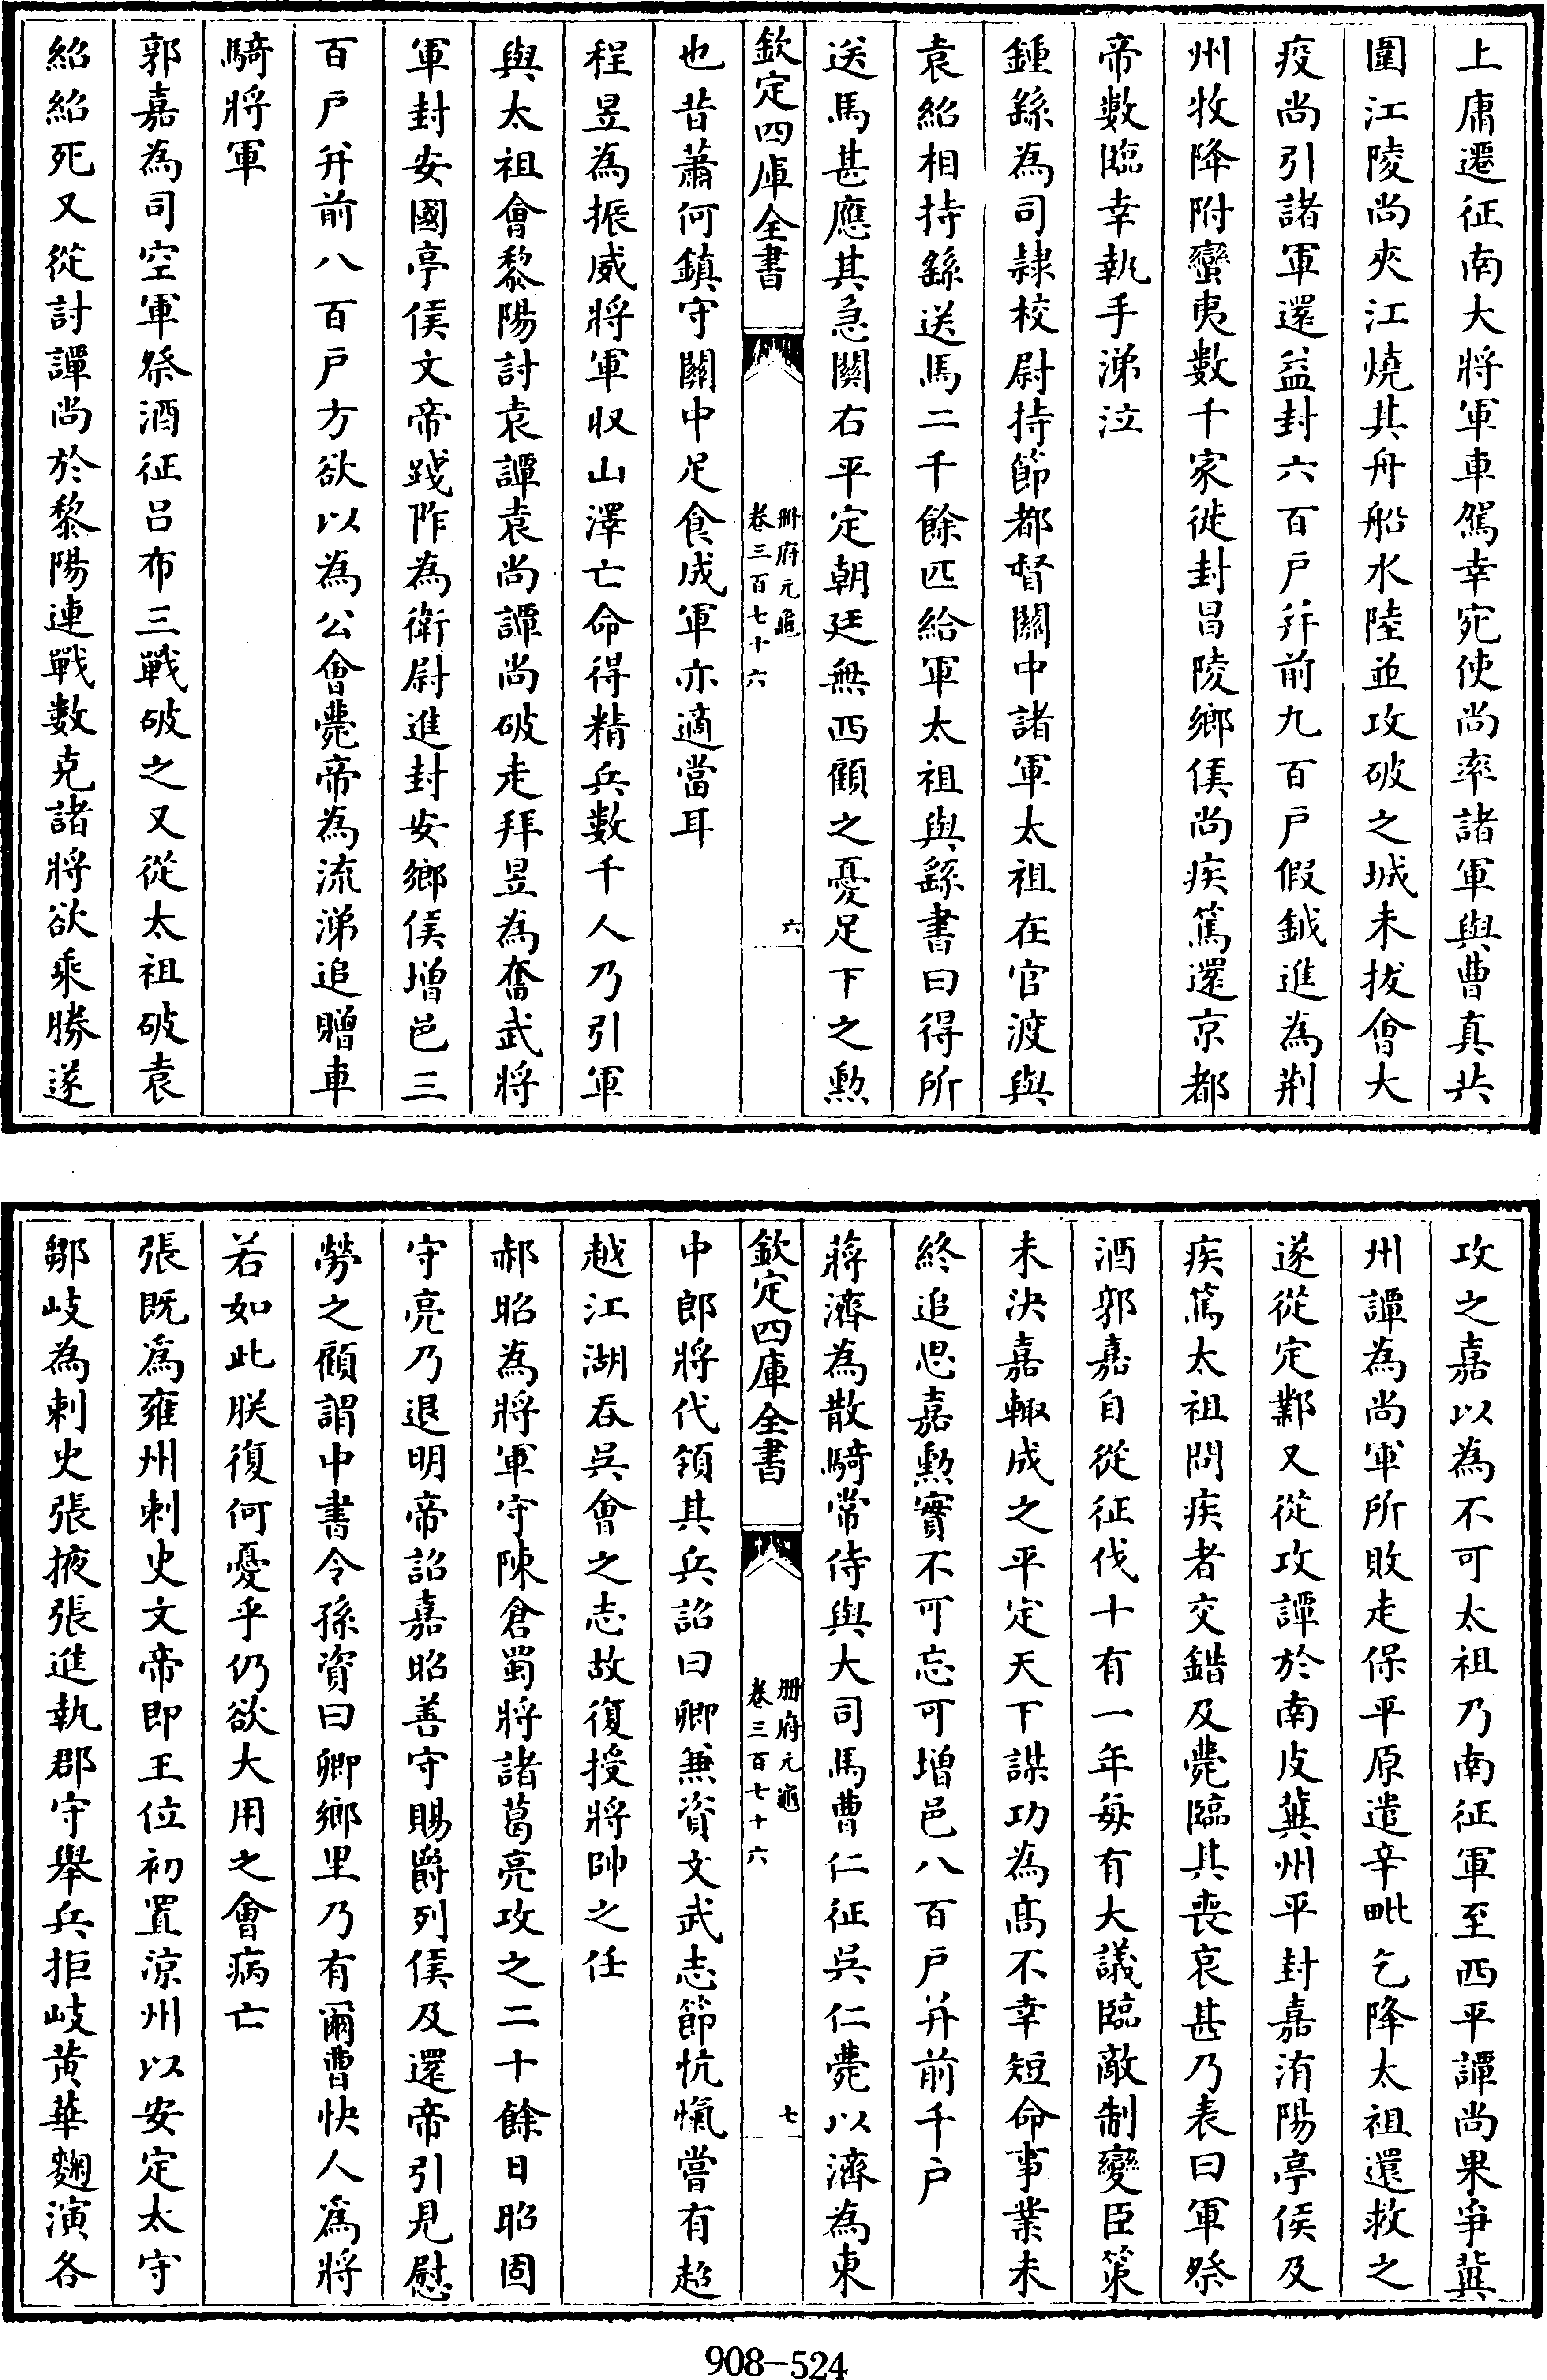 上庸遷征南大將軍車駕幸宛使尚率諸軍與曹真共
圍江陵尚夾江燒其舟船水陸並攻破之城未拔會大
疫尚引諸軍還益封六百戶并前九百戶假鉞進為荆
州牧降附蠻夷數千家徙封昌陵鄉侯尚疾篤還京都
帝數臨幸執手涕泣
鍾繇為司隷校尉持節都督關中諸軍太祖在官渡與
袁紹相持繇送馬二千餘匹給軍太祖與繇書曰得所
送馬甚應其急關右平定朝廷無西顧之憂足下之勲
欽定四庫全書
冊府元龜
卷三百七十六
六
也昔蕭何鎮守關中足食成軍亦適當耳
程昱為振威將軍收山澤亡命得精兵數千人乃引軍
與太祖會黎陽討袁譚袁尚譚尚破走拜昱為奮武將
軍封安國亭侯文帝踐阼為衛尉進封安鄉侯增邑三
百戶并前八百戶方欲以為公會薨帝為流涕追贈車
騎將軍
郭嘉為司空軍祭酒征呂布三戰破之又從太祖破袁
紹紹死又從討譚尚於黎陽連戰數克諸將欲乘勝遂
攻之嘉以為不可太祖乃南征軍至西平譚尚果爭冀
州譚為尚軍所敗走保平原遣辛毗乞降太祖還救之
遂從定鄴又從攻譚於南皮冀州平封嘉洧陽亭侯及
疾篤太祖問疾者交錯及薨臨其喪哀甚乃表曰軍祭
酒郭嘉自從征伐十有一年每有大議臨敵制變臣策
未決嘉輙成之平定天下謀功為高不幸短命事業未
終追思嘉勲實不可忘可增邑八百戶并前千戶
蔣濟為散騎常侍與大司馬曹仁征吳仁薨以濟為東
欽定四庫全書
冊府元龜
卷三百七十六
七
中郎將代領其兵詔曰卿兼資文武志節忼愾嘗有超
越江湖吞吳會之志故復授將帥之任
郝昭為將軍守陳倉蜀將諸葛亮攻之二十餘日昭固
守亮乃退明帝詔嘉昭善守賜爵列侯及還帝引見慰
勞之顧謂中書令孫資曰卿鄉里乃有爾曹快人爲將
若如此朕復何憂乎仍欲大用之會病亡
張既爲雍州刺史文帝即王位初置涼州以安定太守
鄒岐為刺史張掖張進執郡守舉兵拒岐黃華麴演各
908-524